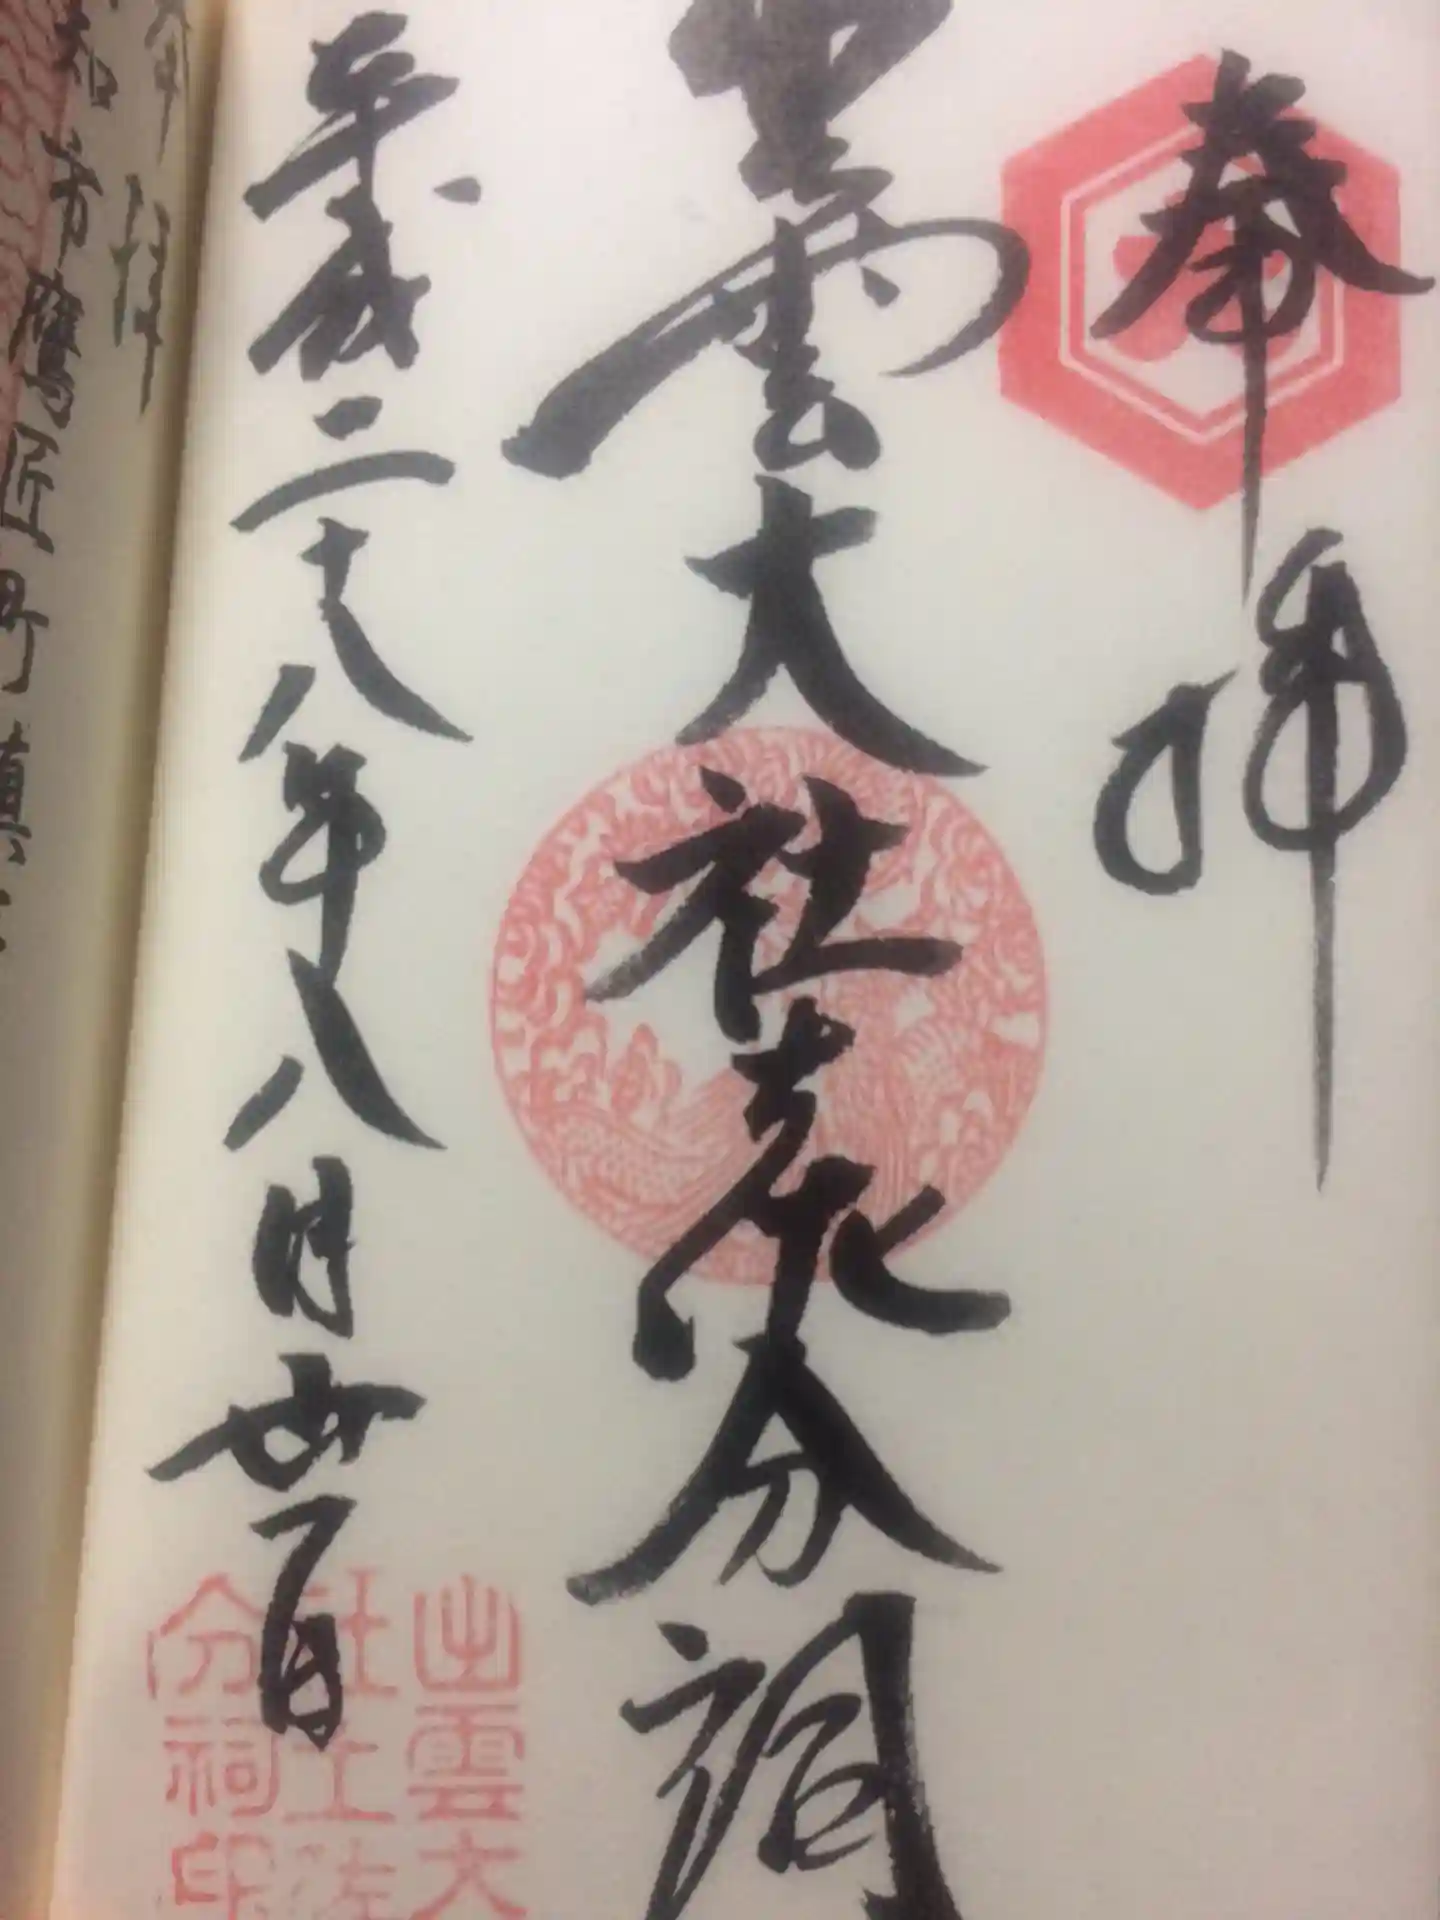 奉拝
大
出雲大社土佐分祠
平成二十八年八月廿一日
出雲大
社土佐
分祠印
奉拝
知市鷹匠町鎮